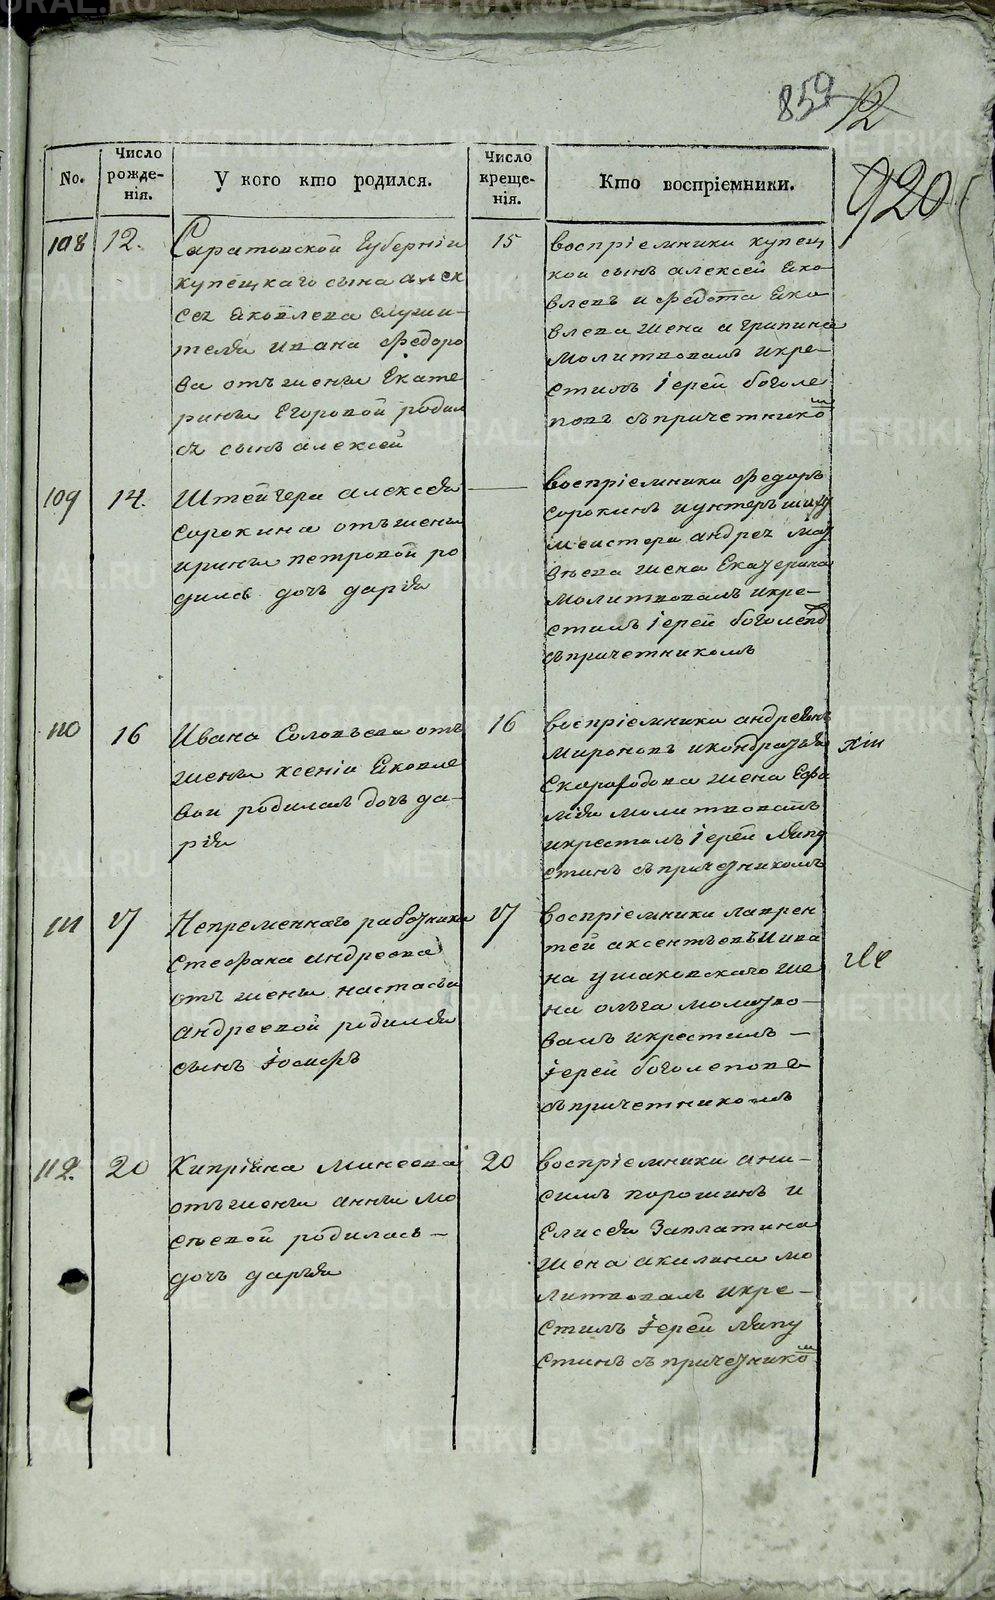 859 12
920
No.
Число рожде-нія.
У кого кто родился.
Число креще-нія.
Кто воспріемники.
108 12. 15
Саратовской Губерніи
купецкаго сына алек
сея Яковлева служи-
теля ивана Федоро
ва отъ жены Екате
рины Егоровой родил
ся сынъ алексей
воспріемники купец
кои сынъ алексей Яко-
влевъ и Федота Яко
влева жена агрипина
молитвовалъ икре-
стилъ іерей боголе
повъ съпричетнико м
109 14.
Штейгера алексея
сорокина отъ жены
ирины петровой ро
дилсь дочь дарія
воспріемники Федоръ
сорокинъ иунтеръ
меистера андрея
жена Екатерина
молитвовалъ икре-
стилъ іерей боголепов
съпричетникомъ
110 16 16
Ивана Соловьева отъ
жены ксеніи Яковле
вои родиласъ дочь да-
рія
воспріемники андреянъ
мироновъ икондратья
Скороходова жена
молитвовалъ
икрестилъ іерей Мяпу
стинъ съпричетникомъ
111 17 17
Непременнаго работника
стефана андреева
отъ жены настасьи
андреевой родился
сынъ іосифъ
воспріемники лаврен
тей аксентьевъ Иива
на ушаковскаго же
на ольга молитво-
валъ икрестилъ -
іерей боголеповъ
съпричетникомъ
112. 20 20
Кипріяна Минеева
отъ жены анны мо
сеевой родилась -
дочь дарья
воспріемники ани-
симъ порошинъ и
Елисея Заплатина
жена акилина мо
литвовалъ икре-
стилъ іерей Мяпу
стинъ съпричетнико м
METRIKI.GASO-URAL.RU